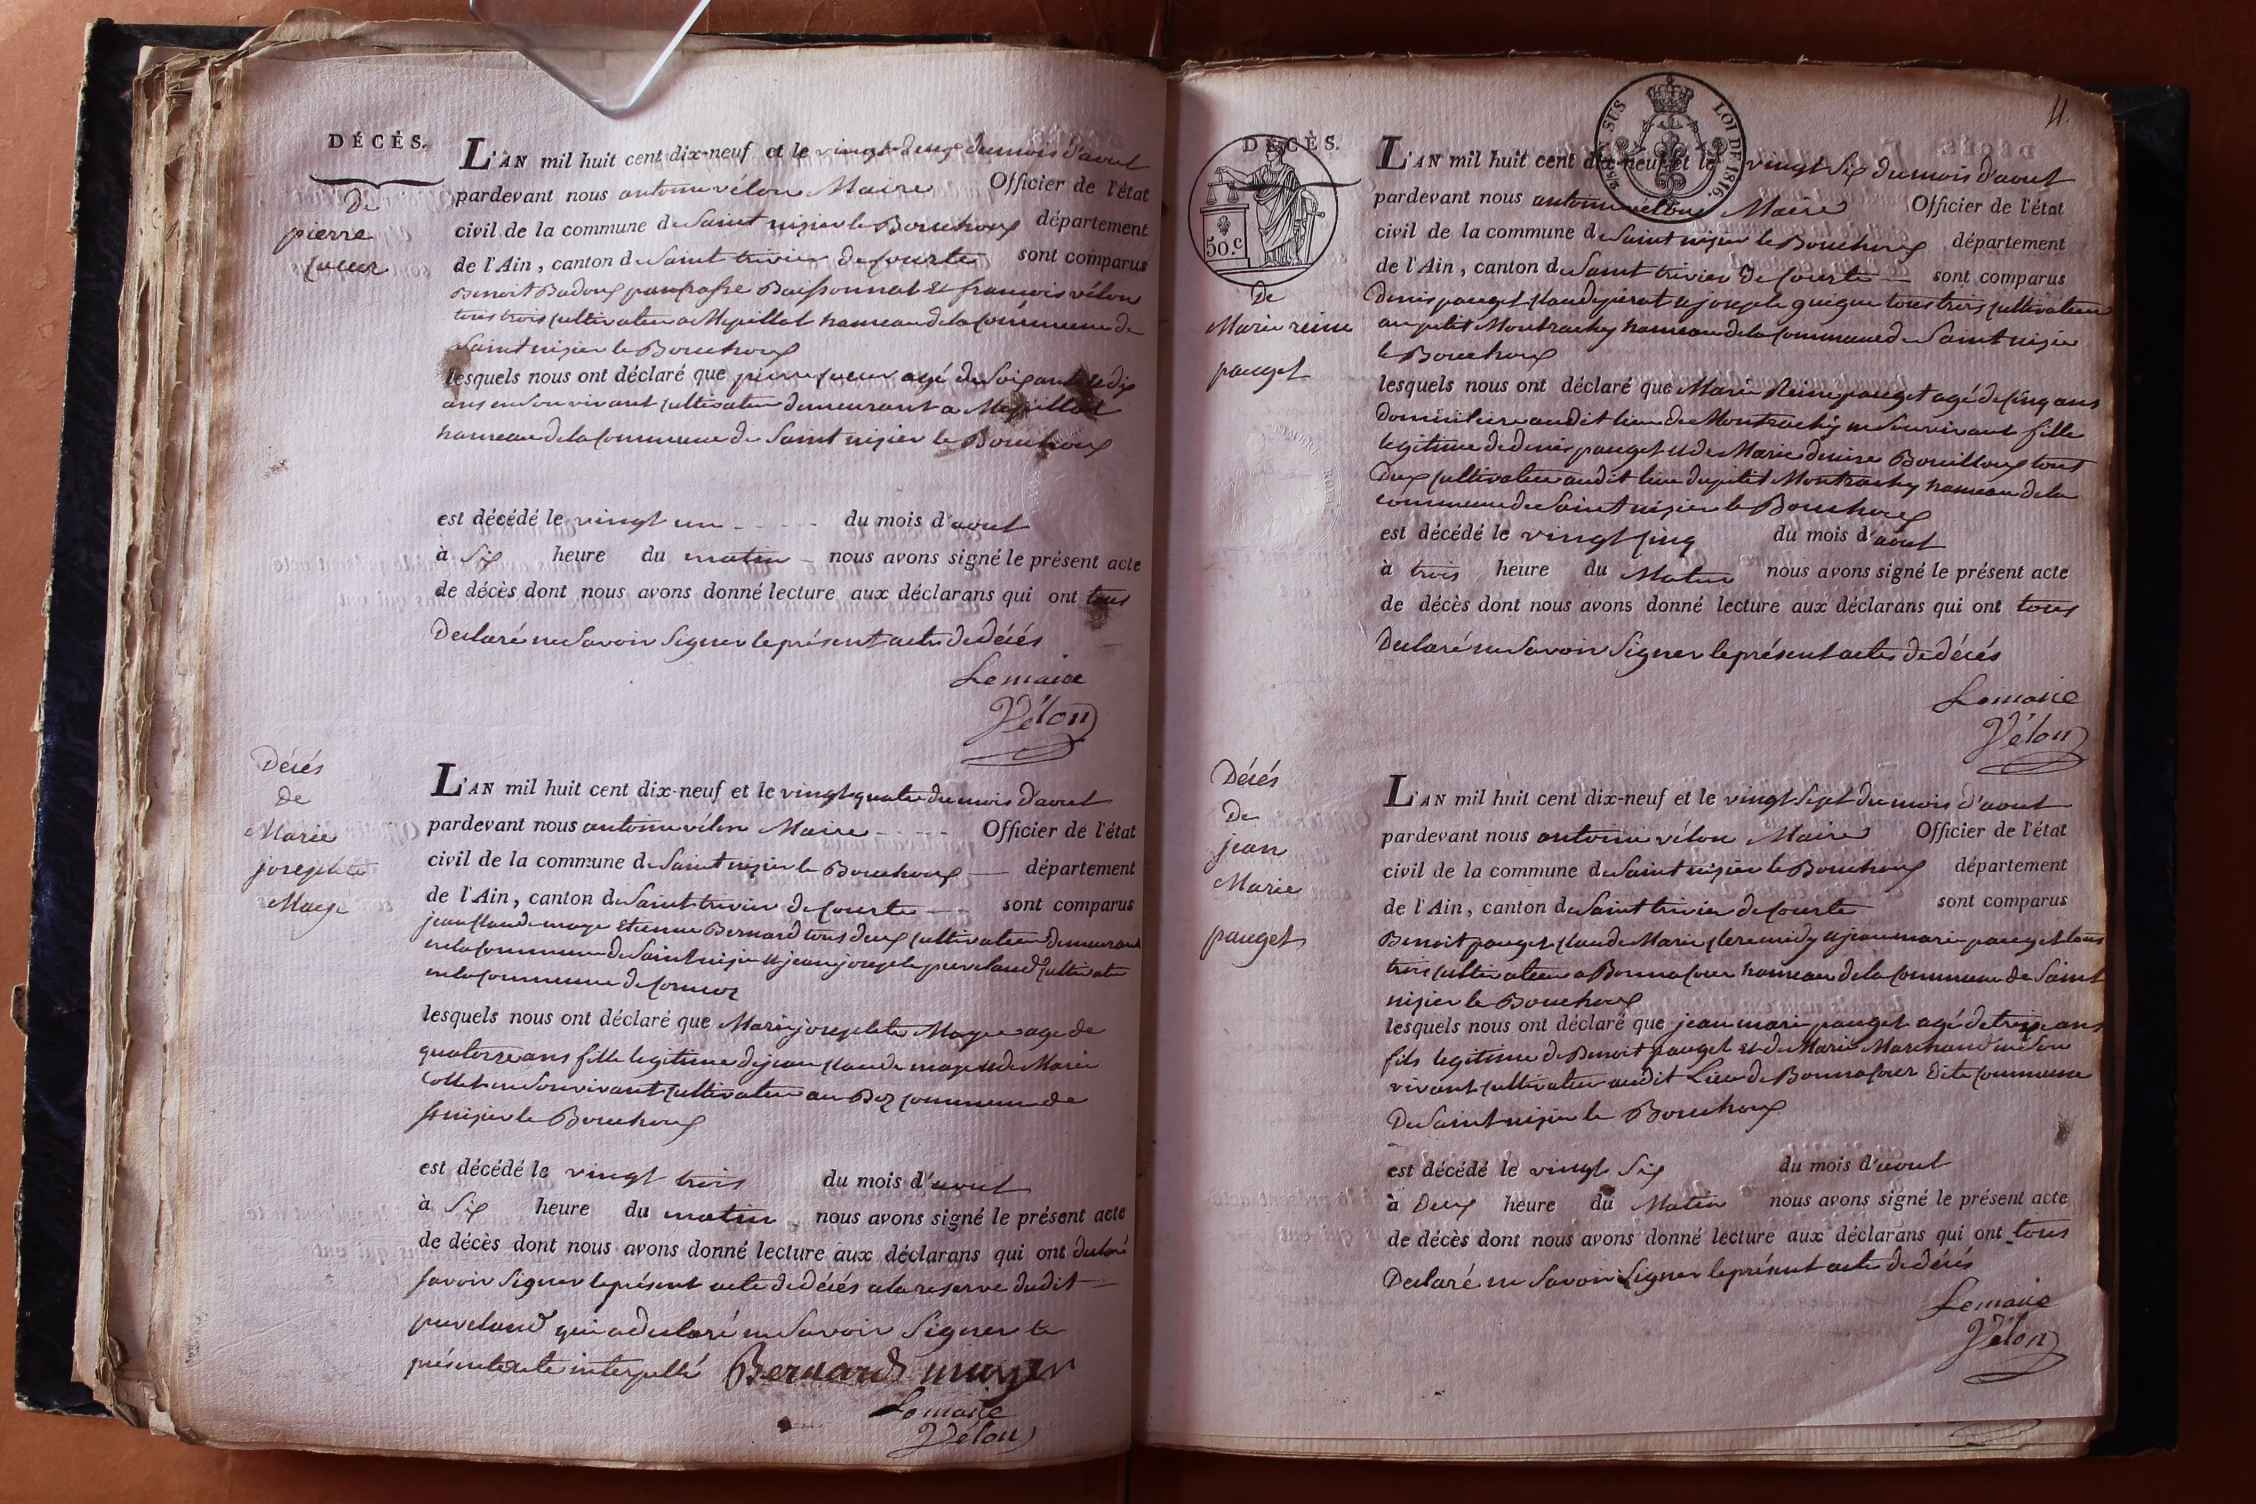 DÉCÈS.
De
pierre
cueur
L'AN mil huit cent dix-neuf et le vingt deux du mois d'aout
pardevant nous antoine vélon Maire Officier de l'état
civil de la commune de Saint nizier le Bouchoux département
de l'Ain, canton de Saint trivier de Courte sont comparus
Benoit Badoux Baissonnat et françois vélon
tous trois cultivateur a Mepillat hameau de la commune de
Saint nizier le Bouchoux
lesquels nous ont déclaré que pierre cueur agé de Soixante et dix
ans en Son vivant cultivateur demeurant a Mepillat
hameau de la commune de Saint nizier le Bouchoux
est décédé le vingt un du mois d'aout
à Six heure du matin nous avons signé le présent acte
de décès dont nous avons donné lecture aux déclarans qui ont tous
Declaré ne Savoir Signer le présent acte de décés
Le maire
Vélon
Décés
De
Marie
josephte
Maye
L'AN mil huit cent dix-neuf et le vingt quatre du mois d'aout
pardevant nous antoine vélon Maire Officier de l'état
civil de la commune de Saint nizier le Bouchoux département
de l'Ain, canton de Saint trivier de Courte sont comparus
jean claude maye Etienne Bernard tous deux cultivateur Demeurant
en la commune de Saint nizier et jean joseph cultivateur
en la commune de Cormoz
lesquels nous ont déclaré que Marie josephte Maye age de
quatorze ans fille legitime de jean claude maye et de Marie
Collet en Son vivant cultivateur au Biez commune de
St nizier le Bouchoux
est décédé le vingt trois du mois d'aout
à Six heure du matin nous avons signé le présent acte
de décès dont nous avons donné lecture aux déclarans qui ont declaré
Savoir Signer le présent acte de décés a la reserve dudit
qui a declaré ne Savoir Signer le
présent acte interpellé Bernard mayer
Le maire
Vélon
11.
SUS
LOI DE 1816.
DÉCÈS.
50.c
De
Marie reine
pauget
L'AN mil huit cent dix-neuf et le vingt Six du mois d'aout
pardevant nous antoine vélon Maire Officier de l'état
civil de la commune de Saint nizier le Bouchoux département
de l'Ain, canton de Saint trivier de Courte sont comparus
Denis pauget claude pérat et joseph guigue tous trois cultivateur
au petit Montrachy hameau de la commune de Saint nizier
le Bouchoux
lesquels nous ont déclaré que Marie Reine pauget agé de Cinq ans
Domiciliere audit lieu de Montrachy en Son vivant fille
legitime de denis pauget et de Marie denise Bouilloux tous
Deux cultivateur audit lieu du petit Montrachy hameau de la
commune de Saint nizier le Bouchoux
est décédé le vingt Cinq du mois d'aout
à trois heure du Matin nous avons signé le présent acte
de décès dont nous avons donné lecture aux déclarans qui ont tous
Declaré ne Savoir Signer le présent acte de décés
Le maire
Vélon
Décés
De
jean
Marie
pauget
L'AN mil huit cent dix-neuf et le vingt Sept du mois d'aout
pardevant nous antoine vélon Maire Officier de l'état
civil de la commune de Saint nizier le Bouchoux département
de l'Ain, canton de Saint trivier de Courte sont comparus
Benoit pauget claude Marie et jean marie pauget tous
trois cultivateur a Bonnacour hameau de la commune de Saint
nizier le Bouchoux
lesquels nous ont déclaré que jean marie pauget agé de treize ans
fils legitime de Benoit pauget et de Marie Marchand en Son
vivant cultivateur audit Lieu de Bonnacour Dite commune
De Saint nizier le Bouchoux
est décédé le vingt Six du mois d'aout
à Deux heure du Matin nous avons signé le présent acte
de décès dont nous avons donné lecture aux déclarans qui ont tous
Declaré ne Savoir Signer le présent acte de décés
Le maire
Vélon